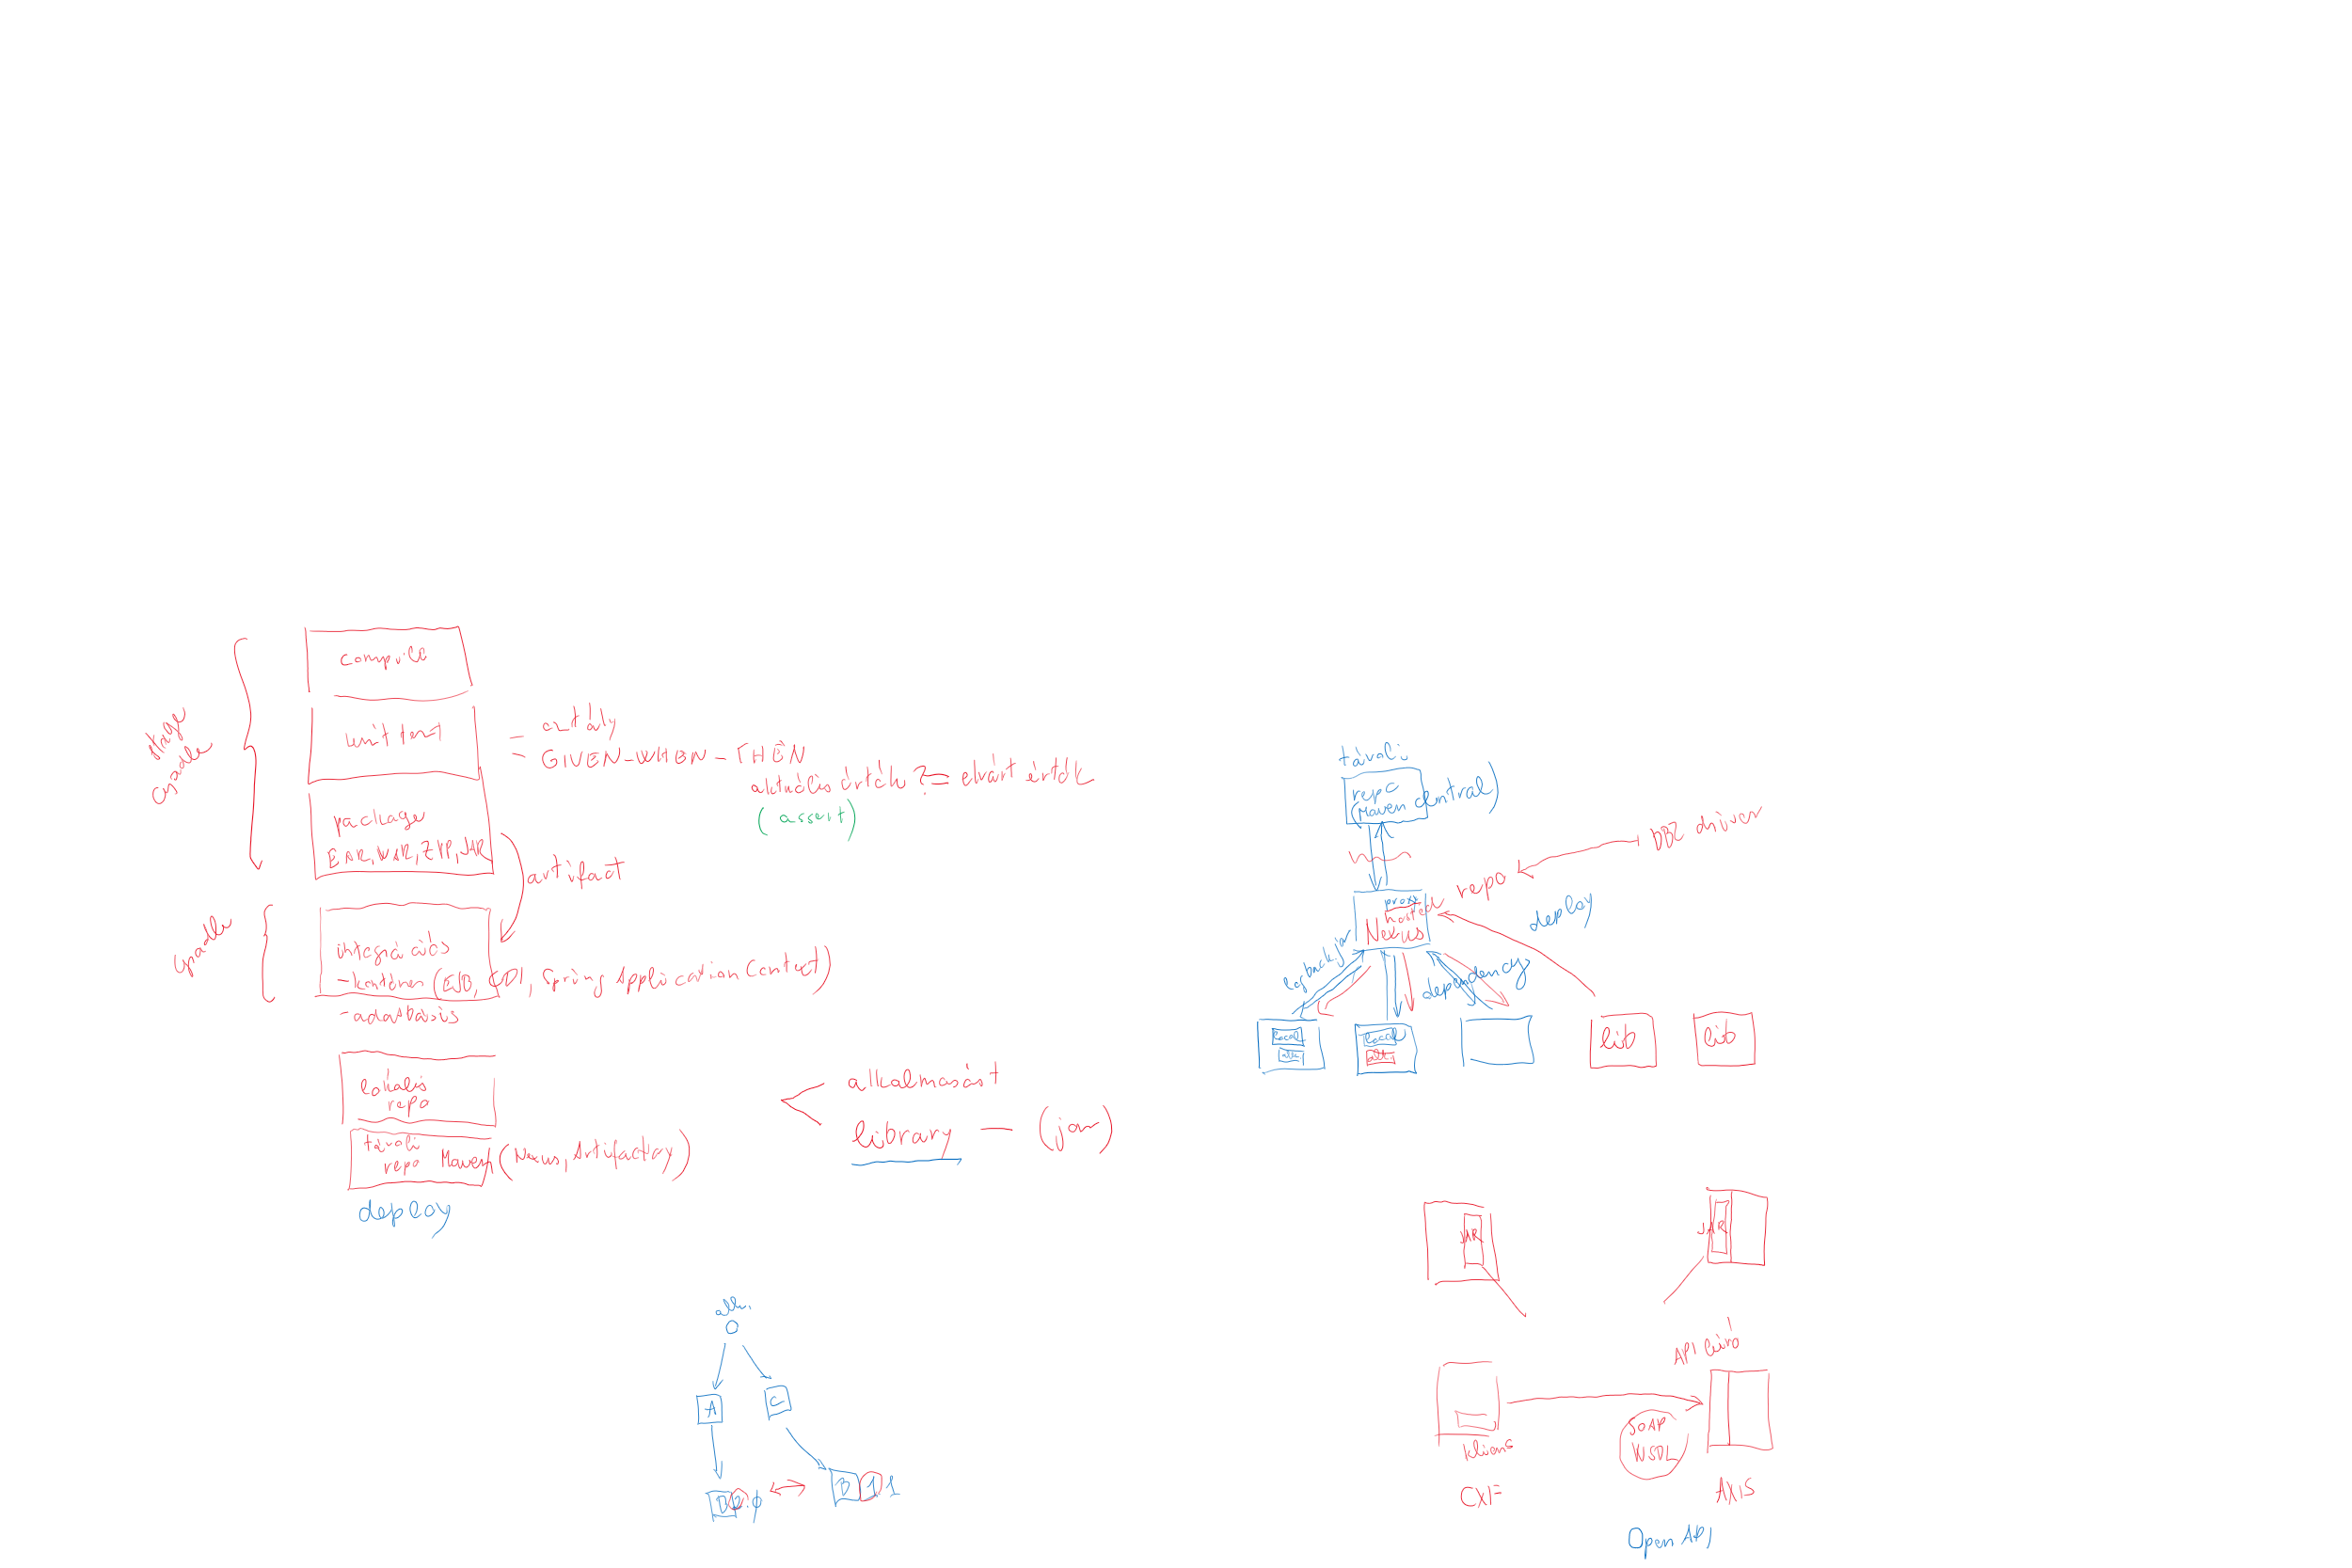 stage
Gradle
compile
unit teszt
- osztály
- GIVEN-WHEN-THEN
aktuális érték ?= elvárt érték
(assert)
package
EAR, WAR, ZIP, JAR
artifact
Gradle
integrációs
- konténer (EJB, CDI, Spring Application Context)
- adatbázis
lokális
repo
távoli
repo Maven (Nexus, Artifactory)
deploy
alkalmazást
library - (jar)
alk.
A
C
B 2.0
B 1.1
távoli
repo
(Maven Central)
proxy
hosted repo
Nexus
DB2 driver
deploy
logback.jar
dependency
local
alk.
local
alk.
lib
lib
JAR
JAR
API leíró
SOAP
WSDL
kliens
CXF
AXIS
Open API